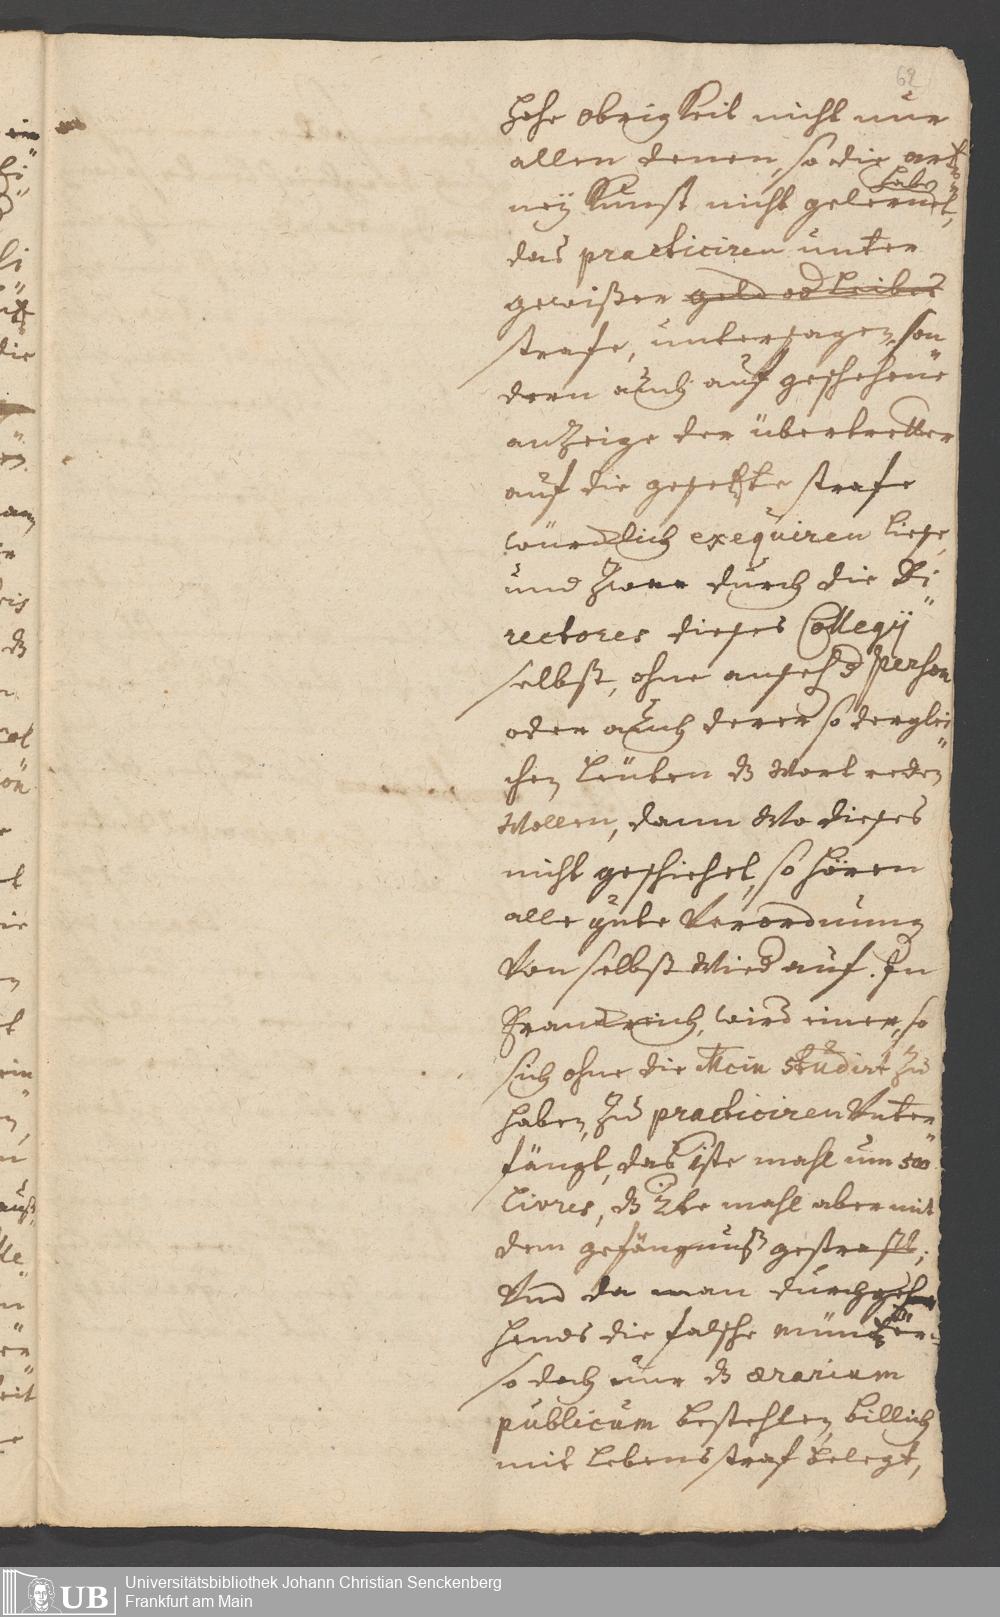 62
hohe obrigkeit nicht nur
allen denen, so die artz
neÿ Kunst nicht gelernet, haben
das practiciren unter
gewißer geld od Leibes
strafe, untersagen, son
dern auch auf geschehene
anzeige der übertretter
auf die gesetzte strafe
würcklich exequiren liese,
und zwar durch die Di
rectores dieses Collegÿ
selbst, ohne anseh d Person
oder auch derer so derglei
chen Leuten dz wort reden
wollen, dann wo dieses
nicht geschiehet, so hören
alle gute Verordnung
von selbst wied auf. In
Franckreich, wird einer, so
sich ohne die Mcin studirt zu
haben, zu practiciren unter
fängt, das 1ste mahl um 500
Livres, dz 2te mahl aber mit
dem gefängnuß gestraft;
Und da man durchgehe
hends die falsche müntzer
so doch nur dz ærarium
publicum bestehlen, billich
mit lebens straf belegt,
UB
Universitätsbibliothek Johann Christian Senckenberg
Frankfurt am Main